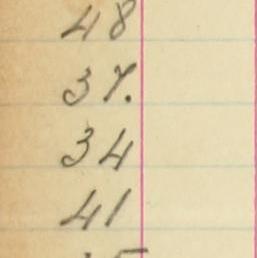 48
37.
34
41